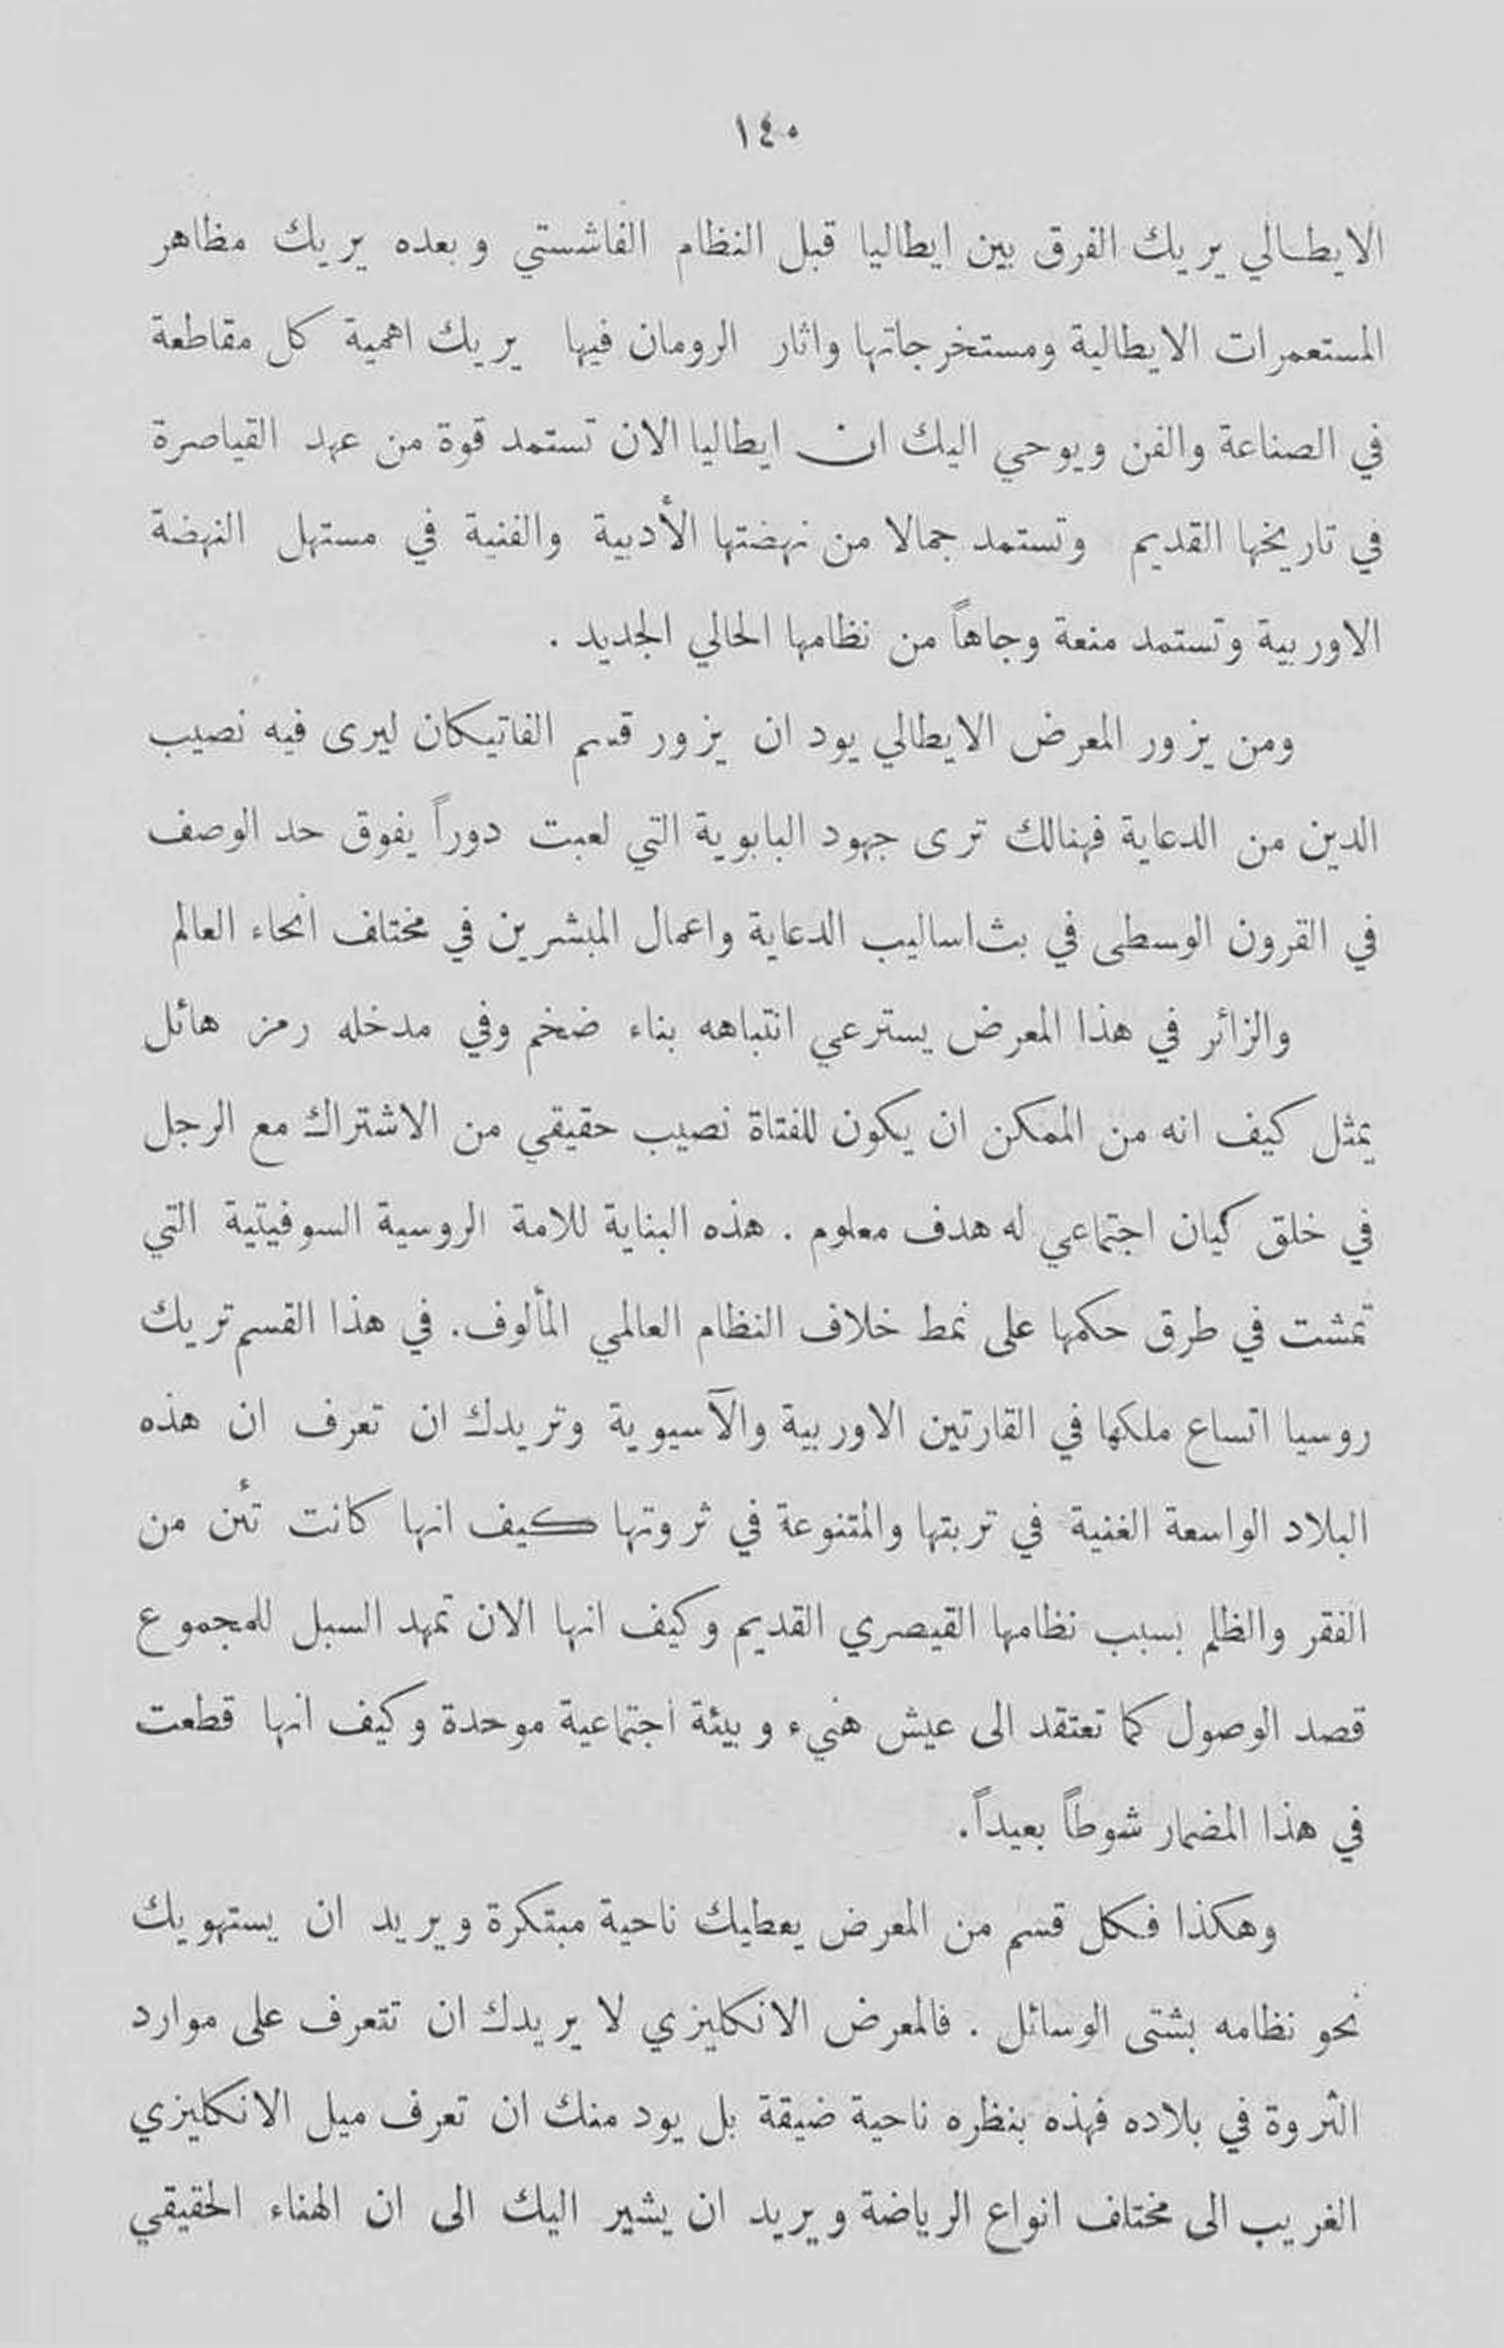 ١٤٠
الايطالي يريك الفرق بين ايطاليا قبل النظام الفاشستي وبعده يريك مظاهر
المستعمرات الايطالية ومستخرجاتها واثار الرومان فيها يريك اهمية كل مقاطعة
في الصناعة والفن ويوحي اليك ان ايطاليا الان تستمد قوة من عهد القياصرة
في تاريخها القديم وتستمد جمالا من نهضتها الأدبية والفنية في مستهل النهضة
الاوربية وتستمد منعة وجاهاً من نظامها الحالي الجديد .
ومن يزور المعرض الايطالي يود ان يزور قسم الفاتيكان ليرى فيه نصيب
الدين من الدعاية فهنالك ترى جهود البابوية التي لعبت دوراً يفوق حد الوصف
في القرون الوسطى في بث اساليب الدعاية واعمال المبشرين في مختلف انحاء العالم
والزائر في هذا المعرض يسترعي انتباهه بناء ضخم وفي مدخله رمز هائل
يمثل كيف انه من الممكن ان يكون للفتاة نصيب حقيقي من الاشتراك مع الرجل
في خلق كيان اجتماعي له هدف معلوم . هذه البناية للامة الروسية السوفيتية التي
تمشت في طرق حكمها على نمط خلاف النظام العالمي المألوف. في هذا القسم تريك
روسيا اتساع ملكها في القارتين الاوربية والآسيوية وتريدك ان تعرف ان هذه
البلاد الواسعة الغنية في تربتها والمتنوعة في ثروتها كيف انها كانت تئن من
الفقر والظلم بسبب نظامها القيصري القديم وكيف انها الان تمهد السبل للمجموع
قصد الوصول كما تعتقد الى عيش هنيء وبيئة اجتماعية موحدة وكيف انها قطعت
في هذا المضمار شوطاً بعيداً.
وهكذا فكل قسم من المعرض يعطيك ناحية مبتكرة ويريد ان يستهويك
نحو نظامه بشتى الوسائل . فالمعرض الانكليزي لا يريدك ان تتعرف على موارد
الثروة في بلاده فهذه بنظره ناحية ضيقة بل يود منك ان تعرف ميل الانكليزي
الغريب الى مختلف انواع الرياضة ويريد ان يشير اليك الى ان الهناء الحقيقي